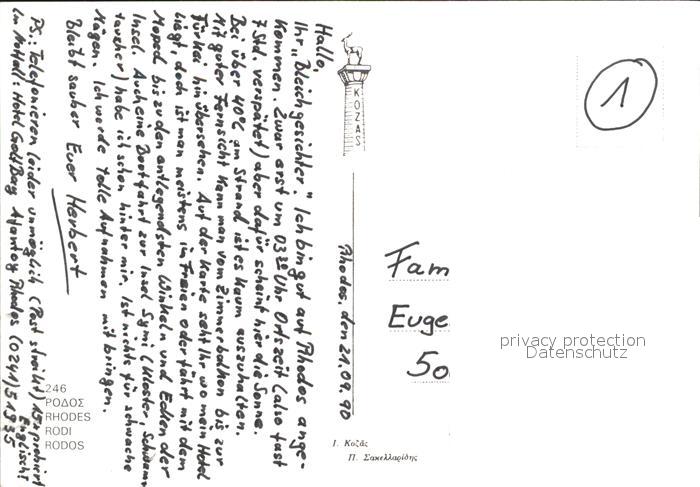 Hallo,
Ihr „Bleichgesichter." Ich bin gut auf Rhodos ange-
kommen. Zwar erst um 03³⁰ Uhr Ortszeit (also fast
7 Std. verspätet) aber dafür scheint hier die Sonne.
Bei über 40°C am Strand ist es kaum auszuhalten.
Mit guter Fernsicht kann man vom Zimmerbalkon bis zur
Türkei hinübersehen. Auf der Karte seht Ihr wo mein Hotel
liegt, doch ist man meistens im Freien oder fährt mit dem
Moped bis zu den entlegendsten Winkeln und Ecken der
Insel. Auch eine Bootfahrt zur Insel Symi (Kloster, Schwamm
taucher) habe ich schon hinter mir. Ist nichts für schwache
Mägen. Ich werde tolle Aufnahmen mitbringen.
Bleibt sauber Euer Herbert
PS.: Telefonieren leider unmöglich (Post streikt) 15x probiert
Im Notfall: Hotel Golf Bay Rhodos (0241) 51935
Englisch!
KOZAS
Rhodos, den 21.09.90
1
Fam
Euge
50
privacy protection
Datenschutz
246
ΡΟΔΟΣ
RHODES
RODI
RODOS
Ι. Κοζάς
Π. Σακελλαρίδης